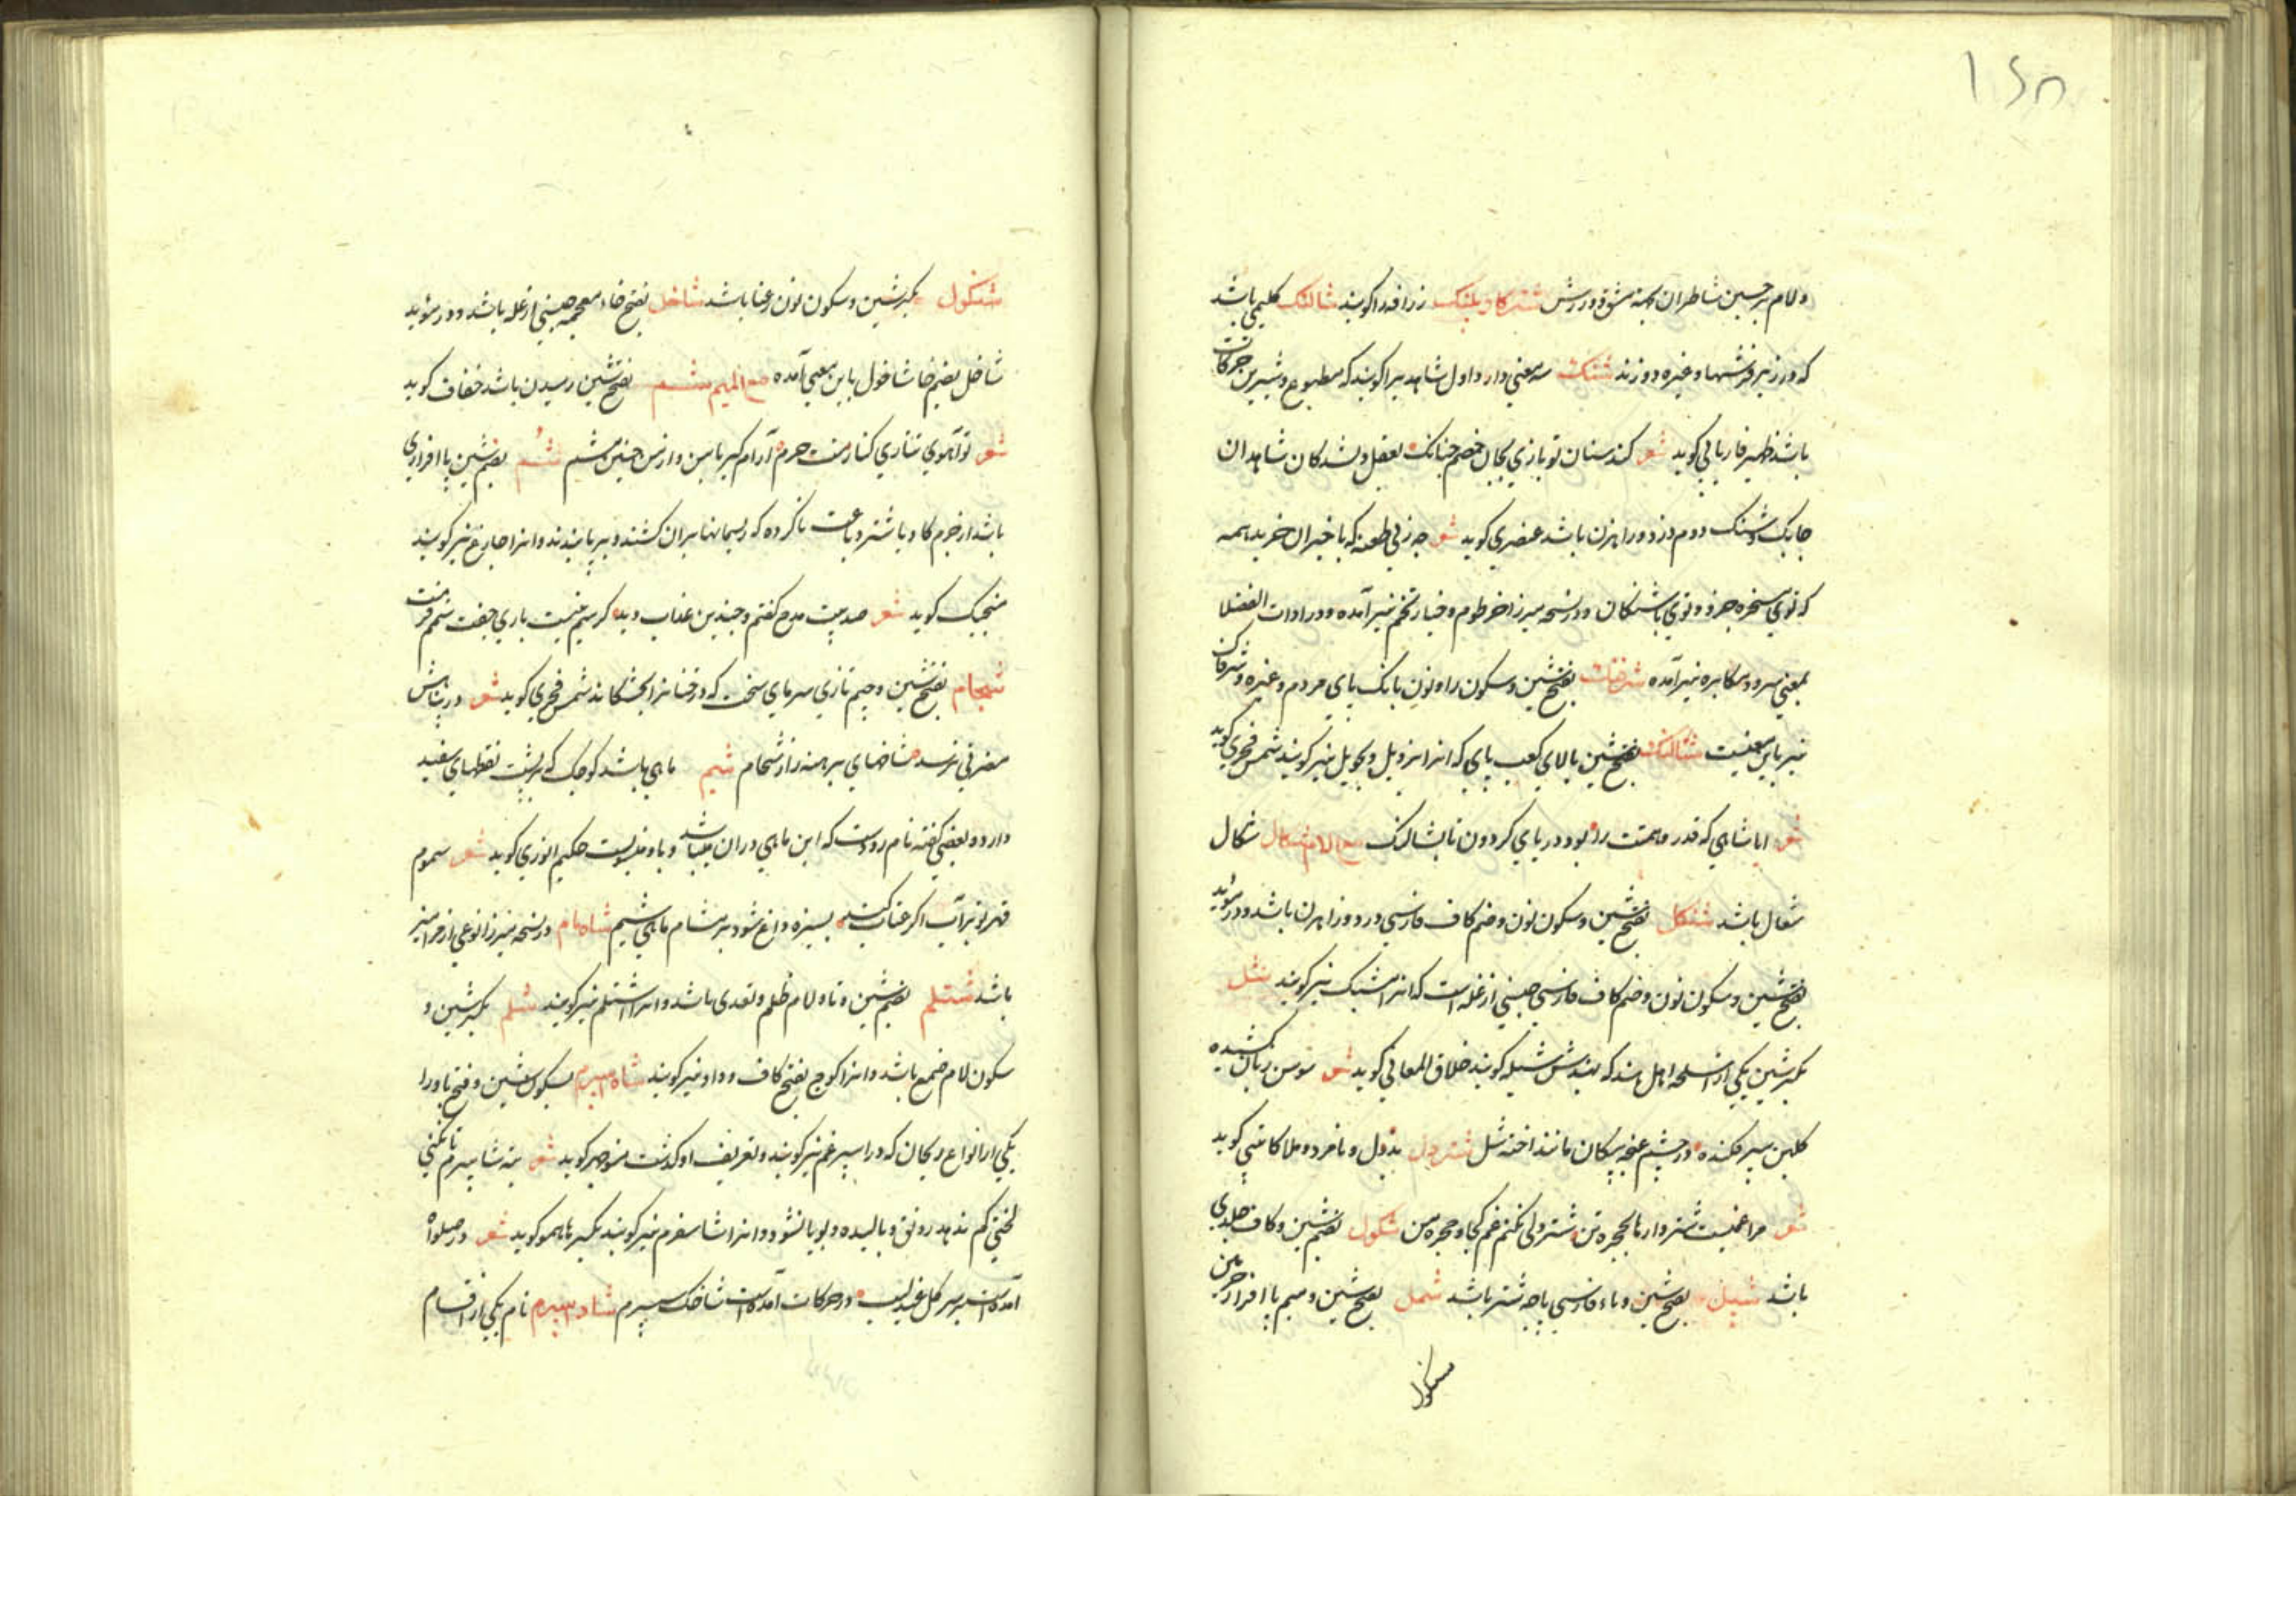 ۱۶۸
ولام برجستن شاطران بجهة مشق و ورزش شتر گاو پلنگ زرافه را گویند شالنک گلیمی باشد
که در زیر فرشها و غیره دوزند شنک سه معنی دارد اول شاهد را گویند که مطبوع و شیرین حرکات
باشد ظهیر فاریابی گوید شعر کند سنان تو بازی بجان خصم چنانک بعقل دلشدکان شاهدان
چابک و شنک دوم دزد و راهزن باشد عنصری گوید شعر چه زنی طعنه که با خیزان خیزید همه
که توی مسخره و توی با شنکان و در نسخه میرزا خرطوم و خیار تخم نیز آمده و در ادات الفضلا
بمعنی سرو و مکابره نیز آمده بفتح شین و سکون را و نون بانک پای مردم و غیره و شرفاک
نیز باین معنیست شتالنک بفتح شین بالای کعب پای که انرا بزول و بجول نیز گویند شمس فخری گوید
شعر ایا شاهی که قدر و همتت را بود دریای کردون تا بشتالنک مع اللام شکال شکال
شغال باشد شنکل بفتح شین و سکون نون و ضم کاف فارسی دزد و راهزن باشد و در مؤید
بفتح شین و سکون نون و ضم کاف فارسی جنسی از غله است که انرا مشنک نیز گویند شل
بکسر شین یکی از اسلحه اهل هند که بهندیش گویند خلاق المعانی گوید شعر سوسن زبان کشیده
کلبن سپر فکنده در چشم غنچه پیکان مانند اخته شل شتر دل بددل و نامرد و ملا کاتبی گوید
شعر مرا غمیست شتروارها بحجره تن شتر دلی نکنم غم کجا و حجره من شکول بضم شین و کاف جلدی
باشد شپل بفتح شین و باء فارسی پاچه شتر باشد شمل بفتح شین و میم پاافزار چرمین
شنکول
شنکول بکسر شین و سکون نون رعنا باشد شاخل بفتح خاء معجمه جنسی از غله باشد و در مؤید
شاخل بضم خا شاخول باین معنی آمده مع المیم شم بفتح شین رمیدن باشد خفاف گوید
شعر تو آهوی تتاری کنار منت حرم آرام گیر با من و از من چنین مشم شم بضم شین پاافزاری
باشد از چرم کاو یا شتر دباغت ناکرده که ریسمانها بران کشند و بر پا بندند و انرا چارغ نیز گویند
منجیک گوید شعر صد بیت مدح گفتم و چندین عذاب دید گر سیم نیست باری جفت شمم فرست
شجام بفتح شین و جیم تازی سرمای سخت که درختانرا بخشکاند شمس فخری گوید شعر در ریاضش
مضرتی نرسد شاخهای برهنه را ز شجام شیم ماهی باشد کوچک که بر پشت نقطهای سفید
دارد و بعضی گفته نام رودست که این ماهی دران میباشد و باو منسوبست حکیم انوری گوید شعر سموم
قهر تو بر آب اگر عتاب کند بسیزه داغ شود بر مشام ماهی شیم شاه بام در نسخه میرزا نوعی از مزامیر
باشد شتلم بضم شین و تا و لام ظلم و تعدی باشد و انرا اشتلم نیز گویند شلم بکسر شین و
سکون لام صمغ باشد و انرا کوج بفتح کاف و واو نیز گویند شاه اسپرم بسکون شین و فتح با و را
یکی از انواع ریحان که درا سپرغم نیز گویند و تعریف او گذشت منوچهر گوید شعر نه شاسپرم تا نکنی
لختی کم ندهد رونق و بالیده و بویا نشود و انرا شاسفرم نیز گویند بکسر ها همو گوید شعر در صلواه
آمده است بر سر گل عندلیب در حرکات آمده است شاخک سپرم شاه سپرم نام یکی از اقسام